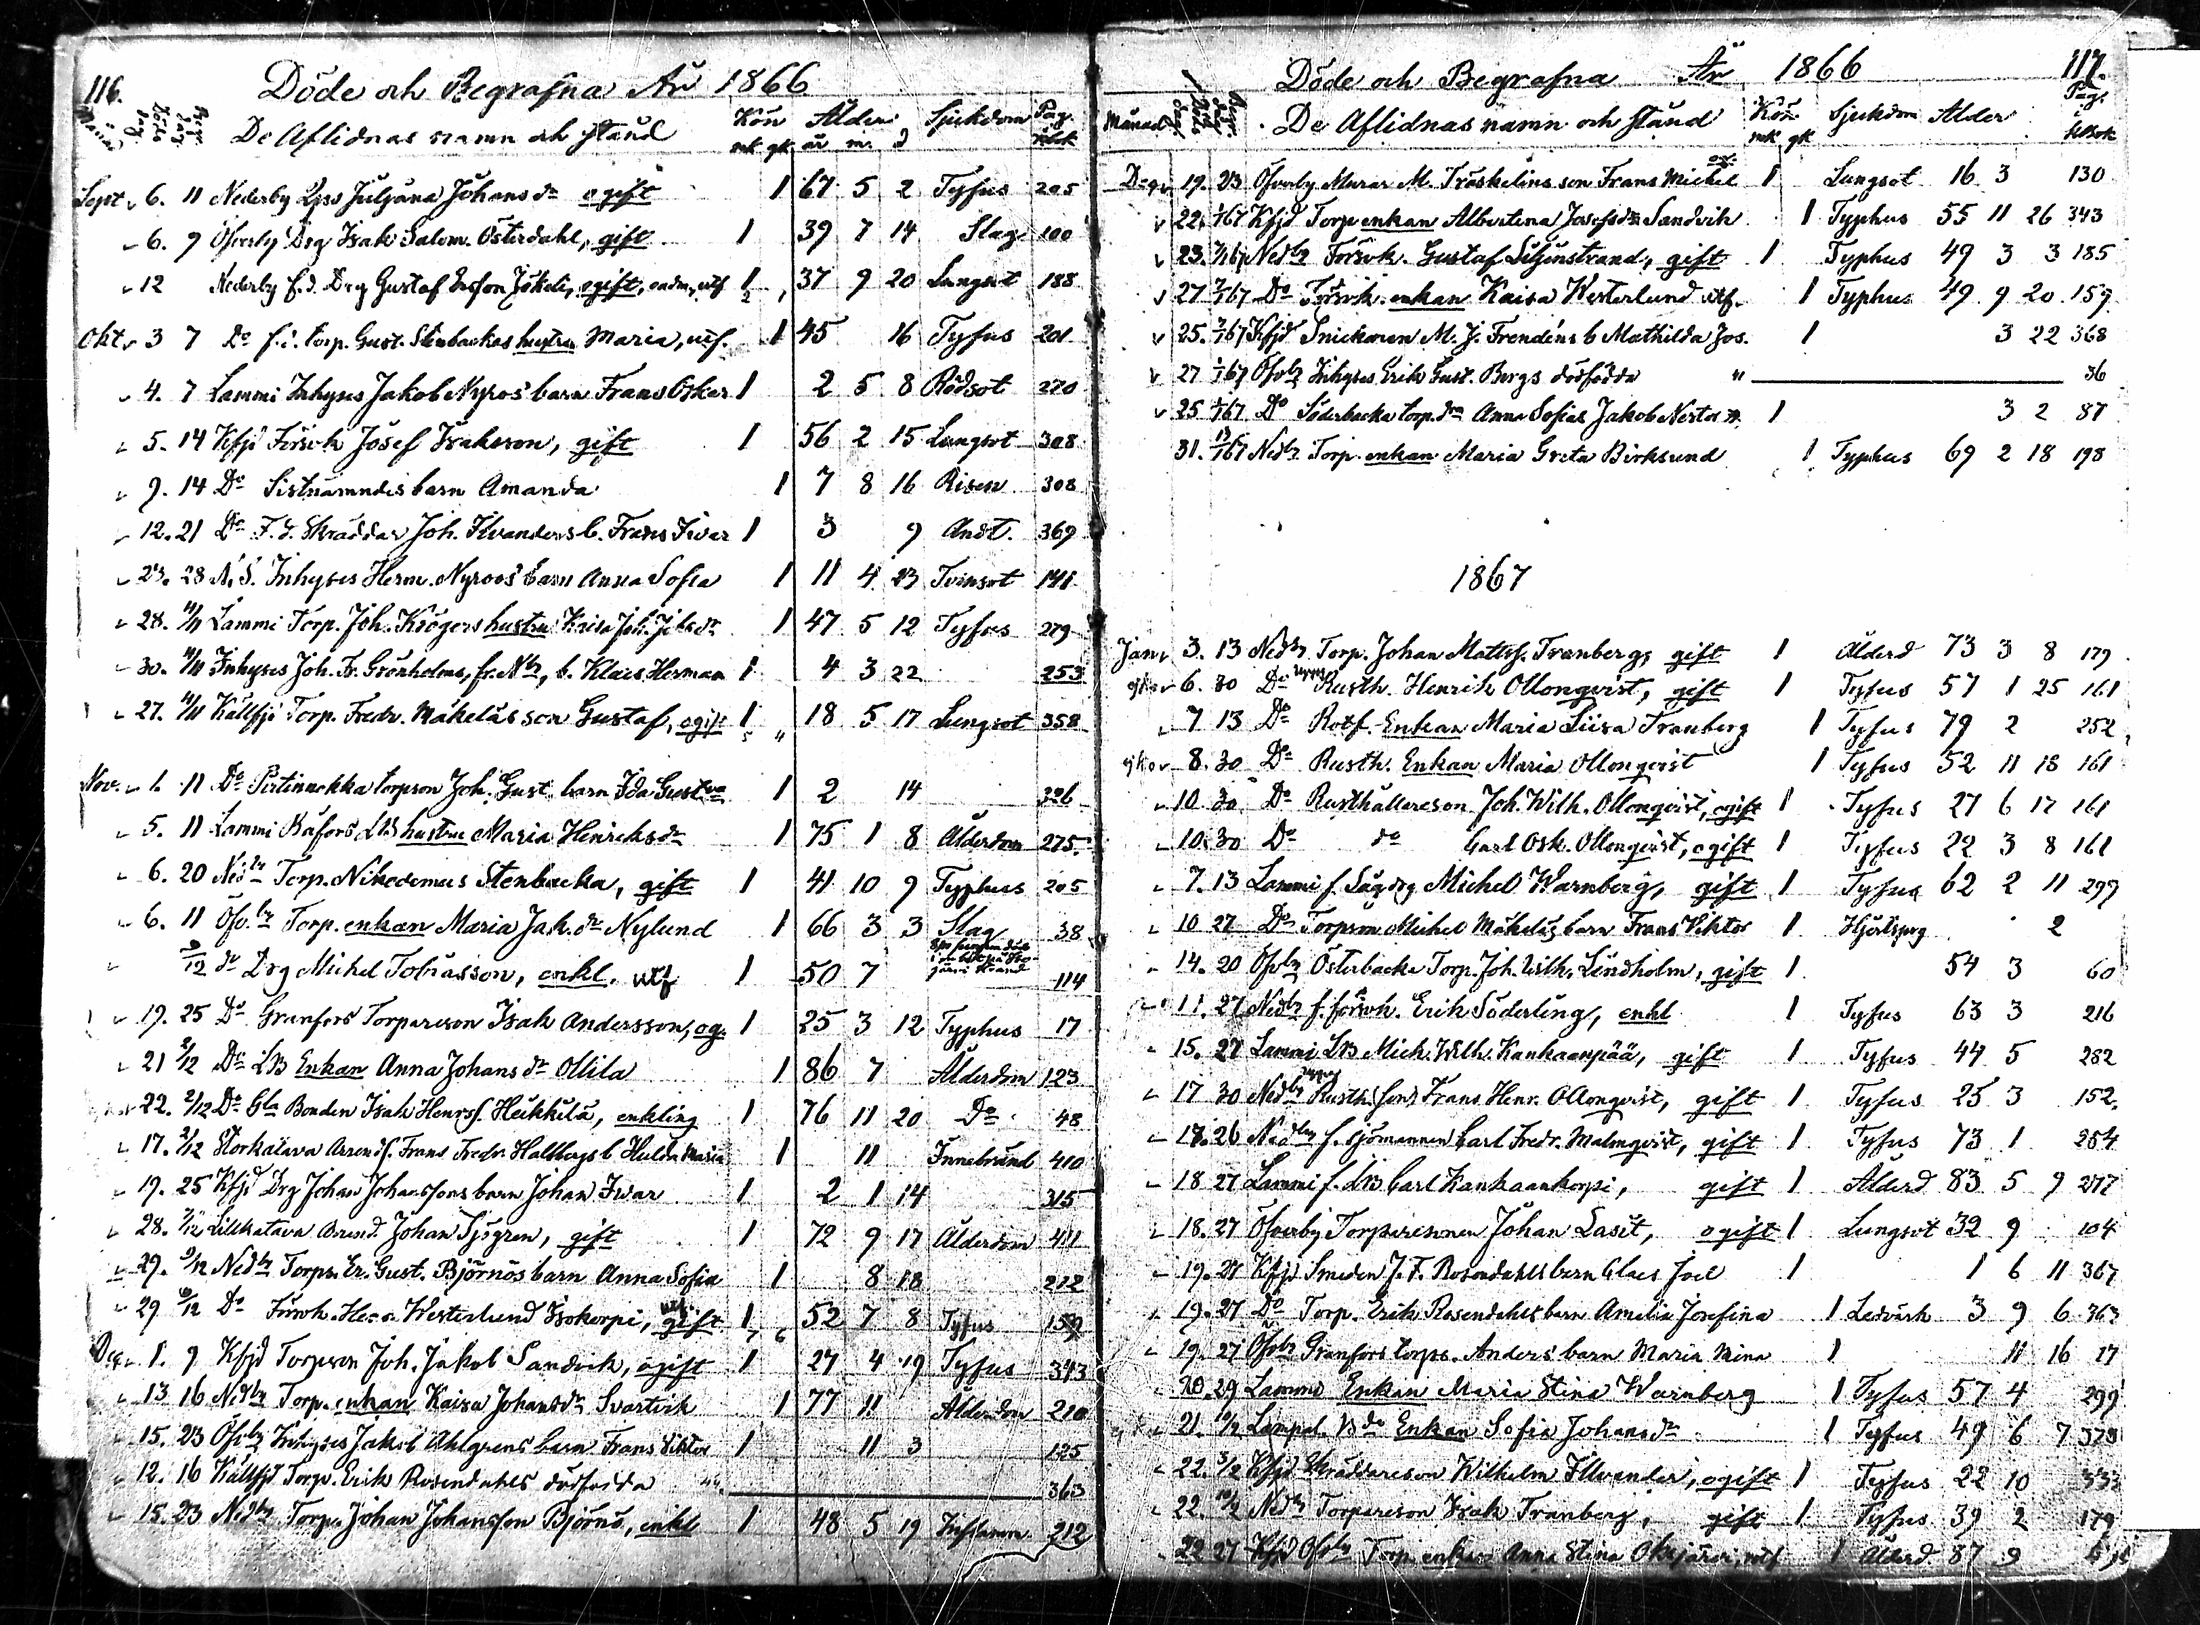 116.
Döde och Begrafna År 1866
Månad Döds dag Begr. dag De Aflidnas namn och stånd Kön mk qk Ålder år m. d Sjukdom Pag. kbok
Sept. 6. 11 Nederby Juljana Johans dr ogift 1 67 5 2 Tyfus 205
6. 9 Öfverby Drg Isak Salom. Österdahl, gift 1 39 7 14 Slag 100
12 Nederby f.d. Drg Gustaf Jökeli, ogift, 1 37 9 20 Lungsot 188
Okt. 3 7 Do f.d. torp. Gust. Stenbackas hustru Maria, utf. 1 45 16 Tyfus 201
4. 7 Lammi Inhyses Jakob Nyros' barn Frans Oskar 1 2 5 8 Rödsot 270
5. 14 Kfjd Försvk Josef Isaksson, gift 1 56 2 15 Lungsot 308
9. 14 Do Sistnämndes barn Amanda 1 7 8 16 Risen 308
12. 21 Do F.d. Skräddar Joh. Ilvanders b. Frans Ivar 1 3 9 Andt. 369
23. 28 N.S. Inhyses Herm. Nyroos' barn Anna Sofia 1 11 4 23 Tvinsot 141
28. 4/11 Lammi Torp. Joh. Krögers hustru Kaisa Joh. dr 1 47 5 12 Tyfus 279
30. 4/11 Inhyses Joh. Fr. Grönholms, fr. Nby, b. Klaes Herman 1 4 3 22 253
27. 4/11 Källfjd Torp. Fredr. Mäkeläs son Gustaf, ogift 1 18 5 17 Lungsot 358
Nov. 1 11 Do torpson Joh. Gust. barn Ida Gustva 1 2 14 326
5. 11 Lammi Båfors LB hustru Maria Henriksdr 1 75 1 8 Ålderdom 275
6. 20 Nedby Torp. Nikodemus Stenbacka, gift 1 41 10 9 Typhus 205
6. 11 Öfvby Torp. enkan Maria Jak. dr Nylund 1 66 3 3 Slag 38
9/12 do Drg Michel Tobiasson, enkl. utf 1 50 7 114
19. 25 Do Granfors Torpareson Isak Andersson, og. 1 25 3 12 Typhus 17
21 2/12 Do LB Enkan Anna Johans dr Ollila 1 86 7 Ålderdom 123
22. 2/12 Do Gla Bonden Isak Henrsf. Heikkilä, enkling 1 76 11 20 Do 48
17. 2/12 Storkatava Arrendf. Frans Fredr. Hallbergs b Hulda Maria 1 11 Innebränd 410
19. 25 Kfjd Drg Johan Johanssons barn Johan Ivar 1 2 1 14 315
28. 2/12 Lillkatava Arrend. Johan Sjögren, gift 1 72 9 17 Ålderdom 411
29. 9/12 Nedby Torps. Er. Gust. Björnös barn Anna Sofia 1 8 18 212
29 9/12 Do Försvk. Herm. Westerlund Isokorpi, utf. gift 1 52 7 8 Tyfus 159
Dec. 1. 9 Kfjd Torpson Joh. Jakob Sandvik, ogift 1 27 4 19 Tyfus 343
13 16 Nedby Torp. enkan Kaisa Johansdr Svartvik 1 77 11 Ålderdom 210
15. 23 Öfvby Inhyses Jakob Ahlgrens barn Frans Viktor 1 11 3 125
12. 16 Källfjd Torp. Erik Rosendahls dödfödda 363
15. 23 Nedby Torp. Johan Johansson Björnö, enkl 1 48 5 19 Inflamm. 212
117.
Döde och Begrafna År 1866
Månad Döds dag Begr. dag De Aflidnas namn och stånd Kön mk qk Sjukdom Ålder Pag. kbok
Dec. 19. 23 Öfverby Murar M. Träskelins son Frans Michel og. 1 Lungsot 16 3 130
22. 1/67 Kfjd Torp enkan Albertina Josefsdr Sandvik 1 Typhus 55 11 26 343
23. 1/67 Nedby Försvk. Gustaf Liljenstrand, gift 1 Typhus 49 3 3 185
27. 1/67 Do Försvk. enkan Kaisa Westerlund utf. 1 Typhus 49 9 20 159
25. 1/67 Kfjd Snickaren M. J. Frendéns b Mathilda Jos. 1 3 22 368
27 1/67 Öfvby Inhyses Erik Gust. Bergs dödfödda " 36
25 1/67 Do Söderbacka torp.dr Anna Sofias Jakob Nestor 1 3 2 87
31. 13/1 67 Nedby Torp. enkan Maria Greta Birksund 1 Typhus 69 2 18 198
1867
Jan. 3. 13 Nedby Torp. Johan Mattsf. Tranberg, gift 1 Ålderd 73 3 8 179
6. 30 Do Rusth. Henrik Ollonqvist, gift 1 Tyfus 57 1 25 161
7 13 Do Rotf. Enkan Maria Liisa Tranberg 1 Tyfus 79 2 252
8. 30 Do Rusth. Enkan Maria Ollonqvist 1 Tyfus 52 11 18 161
10 30 Do Rusthållareson Joh. Wilh. Ollonqvist, ogift 1 Tyfus 27 6 17 161
10. 30 Do do Carl Osk. Ollonqvist, ogift 1 Tyfus 22 3 8 161
7. 13 Lammi f. Sågdrg Michel Warnberg, gift 1 Tyfus 62 2 11 299
10 27 Do Torpson Michel Mäkeläs barn Frans Viktor 1 Hjertsprg 2
14. 20 Öfvby Österbacka Torp. Joh. Wilh. Lindholm, gift 1 54 3 60
11. 27 Nedby f. försvk. Erik Söderling, enkl 1 Tyfus 63 3 216
15. 27 Lammi LB Mich. Wilh. Kankaanpää, gift 1 Tyfus 44 5 282
17 30 Nedby Rusth. son Frans Henr. Ollonqvist, gift 1 Tyfus 25 3 152.
17. 26 Nedby f. sjömannen Carl Fredr. Malmqvist, gift 1 Tyfus 73 1 254
18 27 Lammi f. LB Carl Kankaankorpi, gift 1 Ålderd 83 5 9 277
18. 27 Öfverby Torparesonen Johan Lasit, ogift 1 Lungsot 32 9 104
19. 27 Kfjd Smeden J. F. Rosendahls barn Claes Joel 1 1 6 11 367
19. 27 Do Torp. Erik Rosendahls barn Amalia Josefina 1 Ledvärk 3 9 6 363
19. 27 Öfvby Granfors torps. Anders' barn Maria Mina 1 11 16 17
20. 29 Lammi Enkan Maria Stina Warnberg 1 Tyfus 57 4 299
21. 10/2 Lampel. Enkan Sofia Johansdr 1 Tyfus 49 6 7
22. 3/2 Kfjd Skräddareson Wilhelm Ilvander, ogift 1 Tyfus 22 10 333
22. 10/2 Nedby Torpareson Isak Tranberg, gift 1 Tyfus 39 2 179
22 27 Öfvby Torp. enkan Anna Stina utf 1 Ålderd 87 9